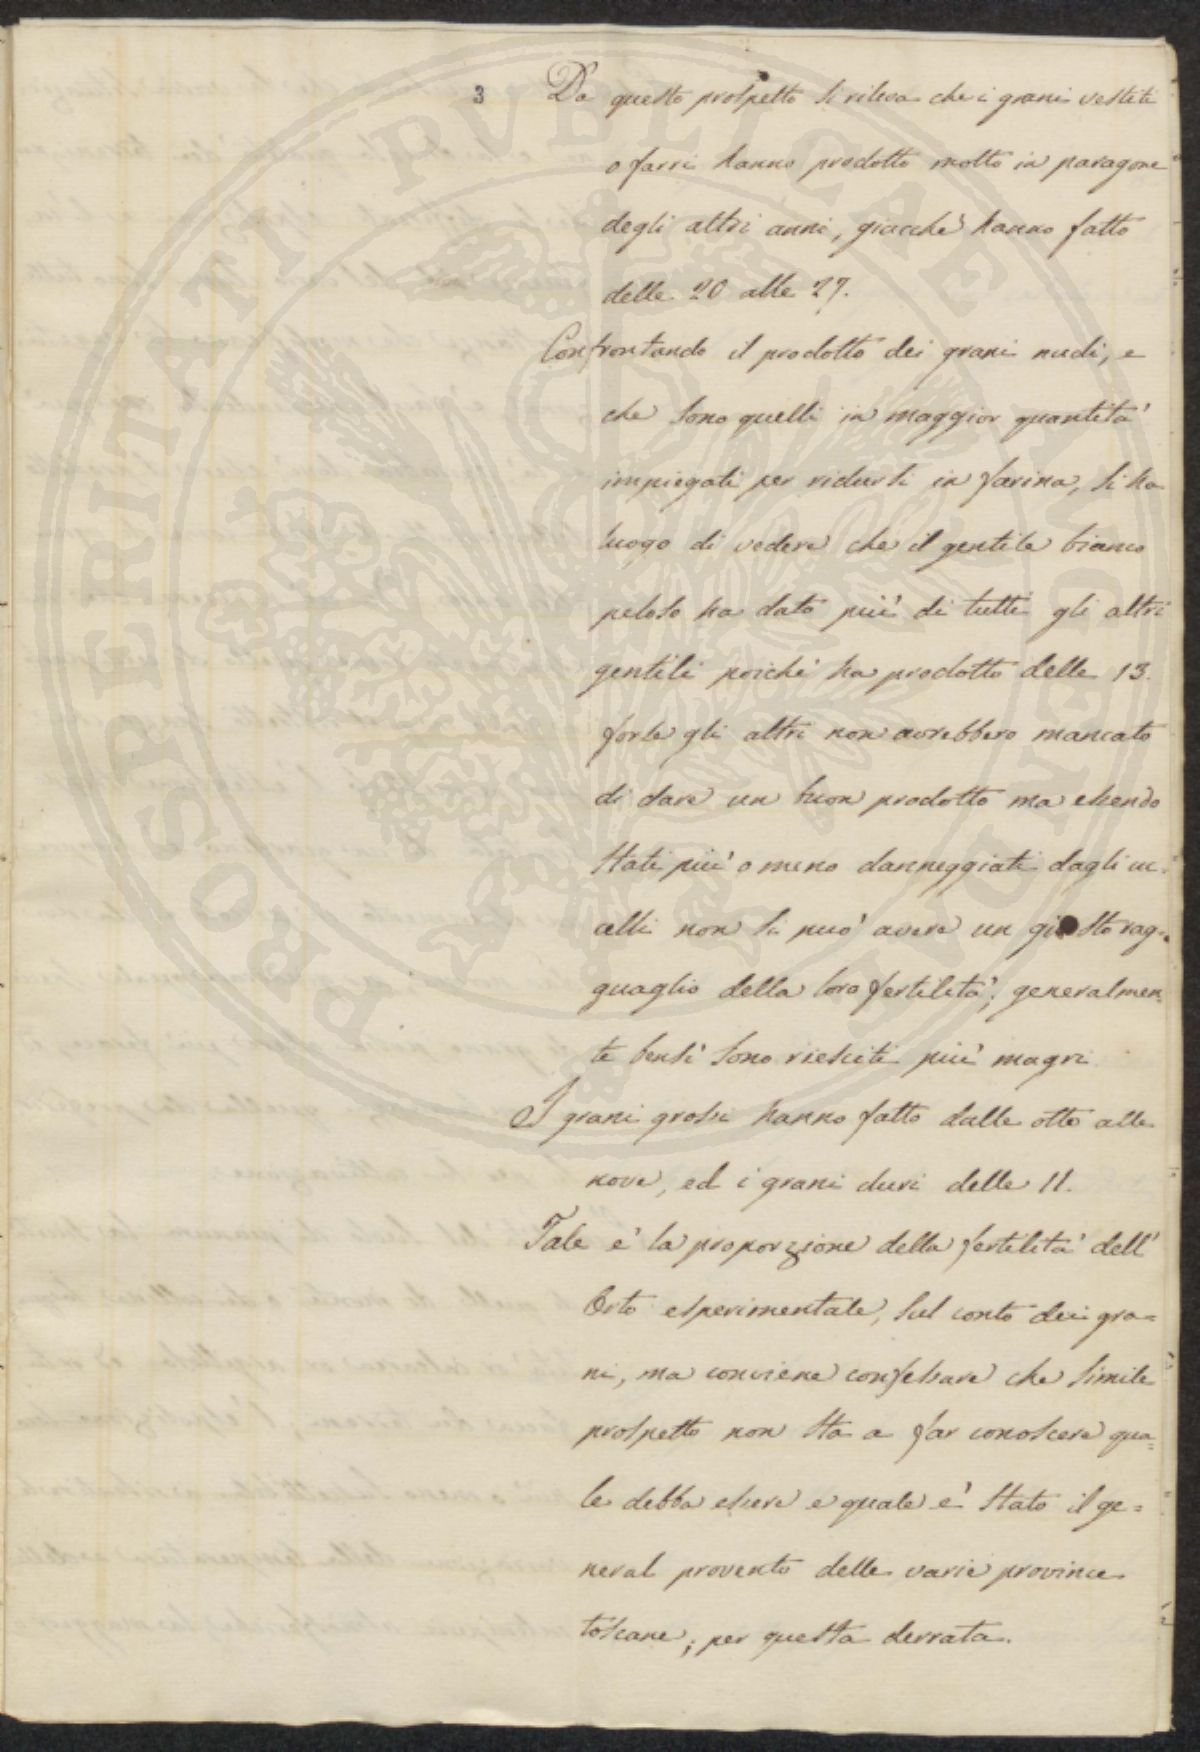 3
Da questo prospetto si rileva che i grani vestiti
o farri hanno prodotto molto in paragone
degli altri anni, giacchè hanno fatto
delle 20 alle 27.
Confrontando il prodotto dei grani nudi, e
che sono quelli in maggior quantità
impiegati per ridursi in farina, si ha
luogo di vedere che il gentile bianco
peloso ha dato più di tutti gli altri
gentili poichè ha prodotto delle 13.
forse gli altri non avrebbero mancato
di dare un buon prodotto ma essendo
stati più o meno danneggiati dagli uc-
celli non si può avere un giusto rag-
guaglio della loro fertilità; generalmen-
te bensì sono riesciti più magri
I grani grossi hanno fatto dalle otto alle
nove, ed i grani duri delle 11.
Tale è la proporzione della fertilità dell'
Orto esperimentale, sul conto dei gra=
ni, ma conviene confessare che simile
prospetto non sta a far conoscere qua=
le debba essere e quale è stato il ge=
neral provento delle varie province
toscane, per questa derrata.
PROSPERITATI PVBLICAE AVGENDAE